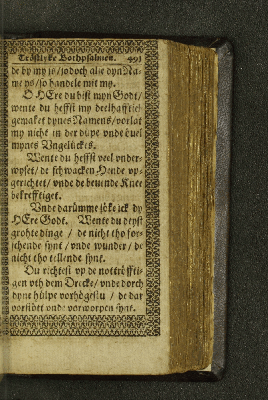 Tröstlyke Bothpsalmen. 491
de by my is/ jo doch alse dyn Na-
me ys/ so handele mit my.
O HEre du bist myn Godt/
wente du heffst my deelhafftich
gemaket dynes Namens/ vorlat
my nicht in der düpe vnde öuel
mynes Vngelückes.
Wente du heffst veel vnder-
wyset/ de schwacken Hende vp-
gerichtet/ vnde de beuende Knee
bekrefftiget.
Vnde darümme söke ick dy
HEre Godt. Wente du deyst
grothe dinge / de nicht tho for-
schende synt / vnde wunder / de
nicht tho tellende synt.
Du richtest vp de nottröffti-
gen vth dem Drecke/ vnde dorch
dyne hülpe vorhögestu / de dar
vorstött vnde vorworpen synt.